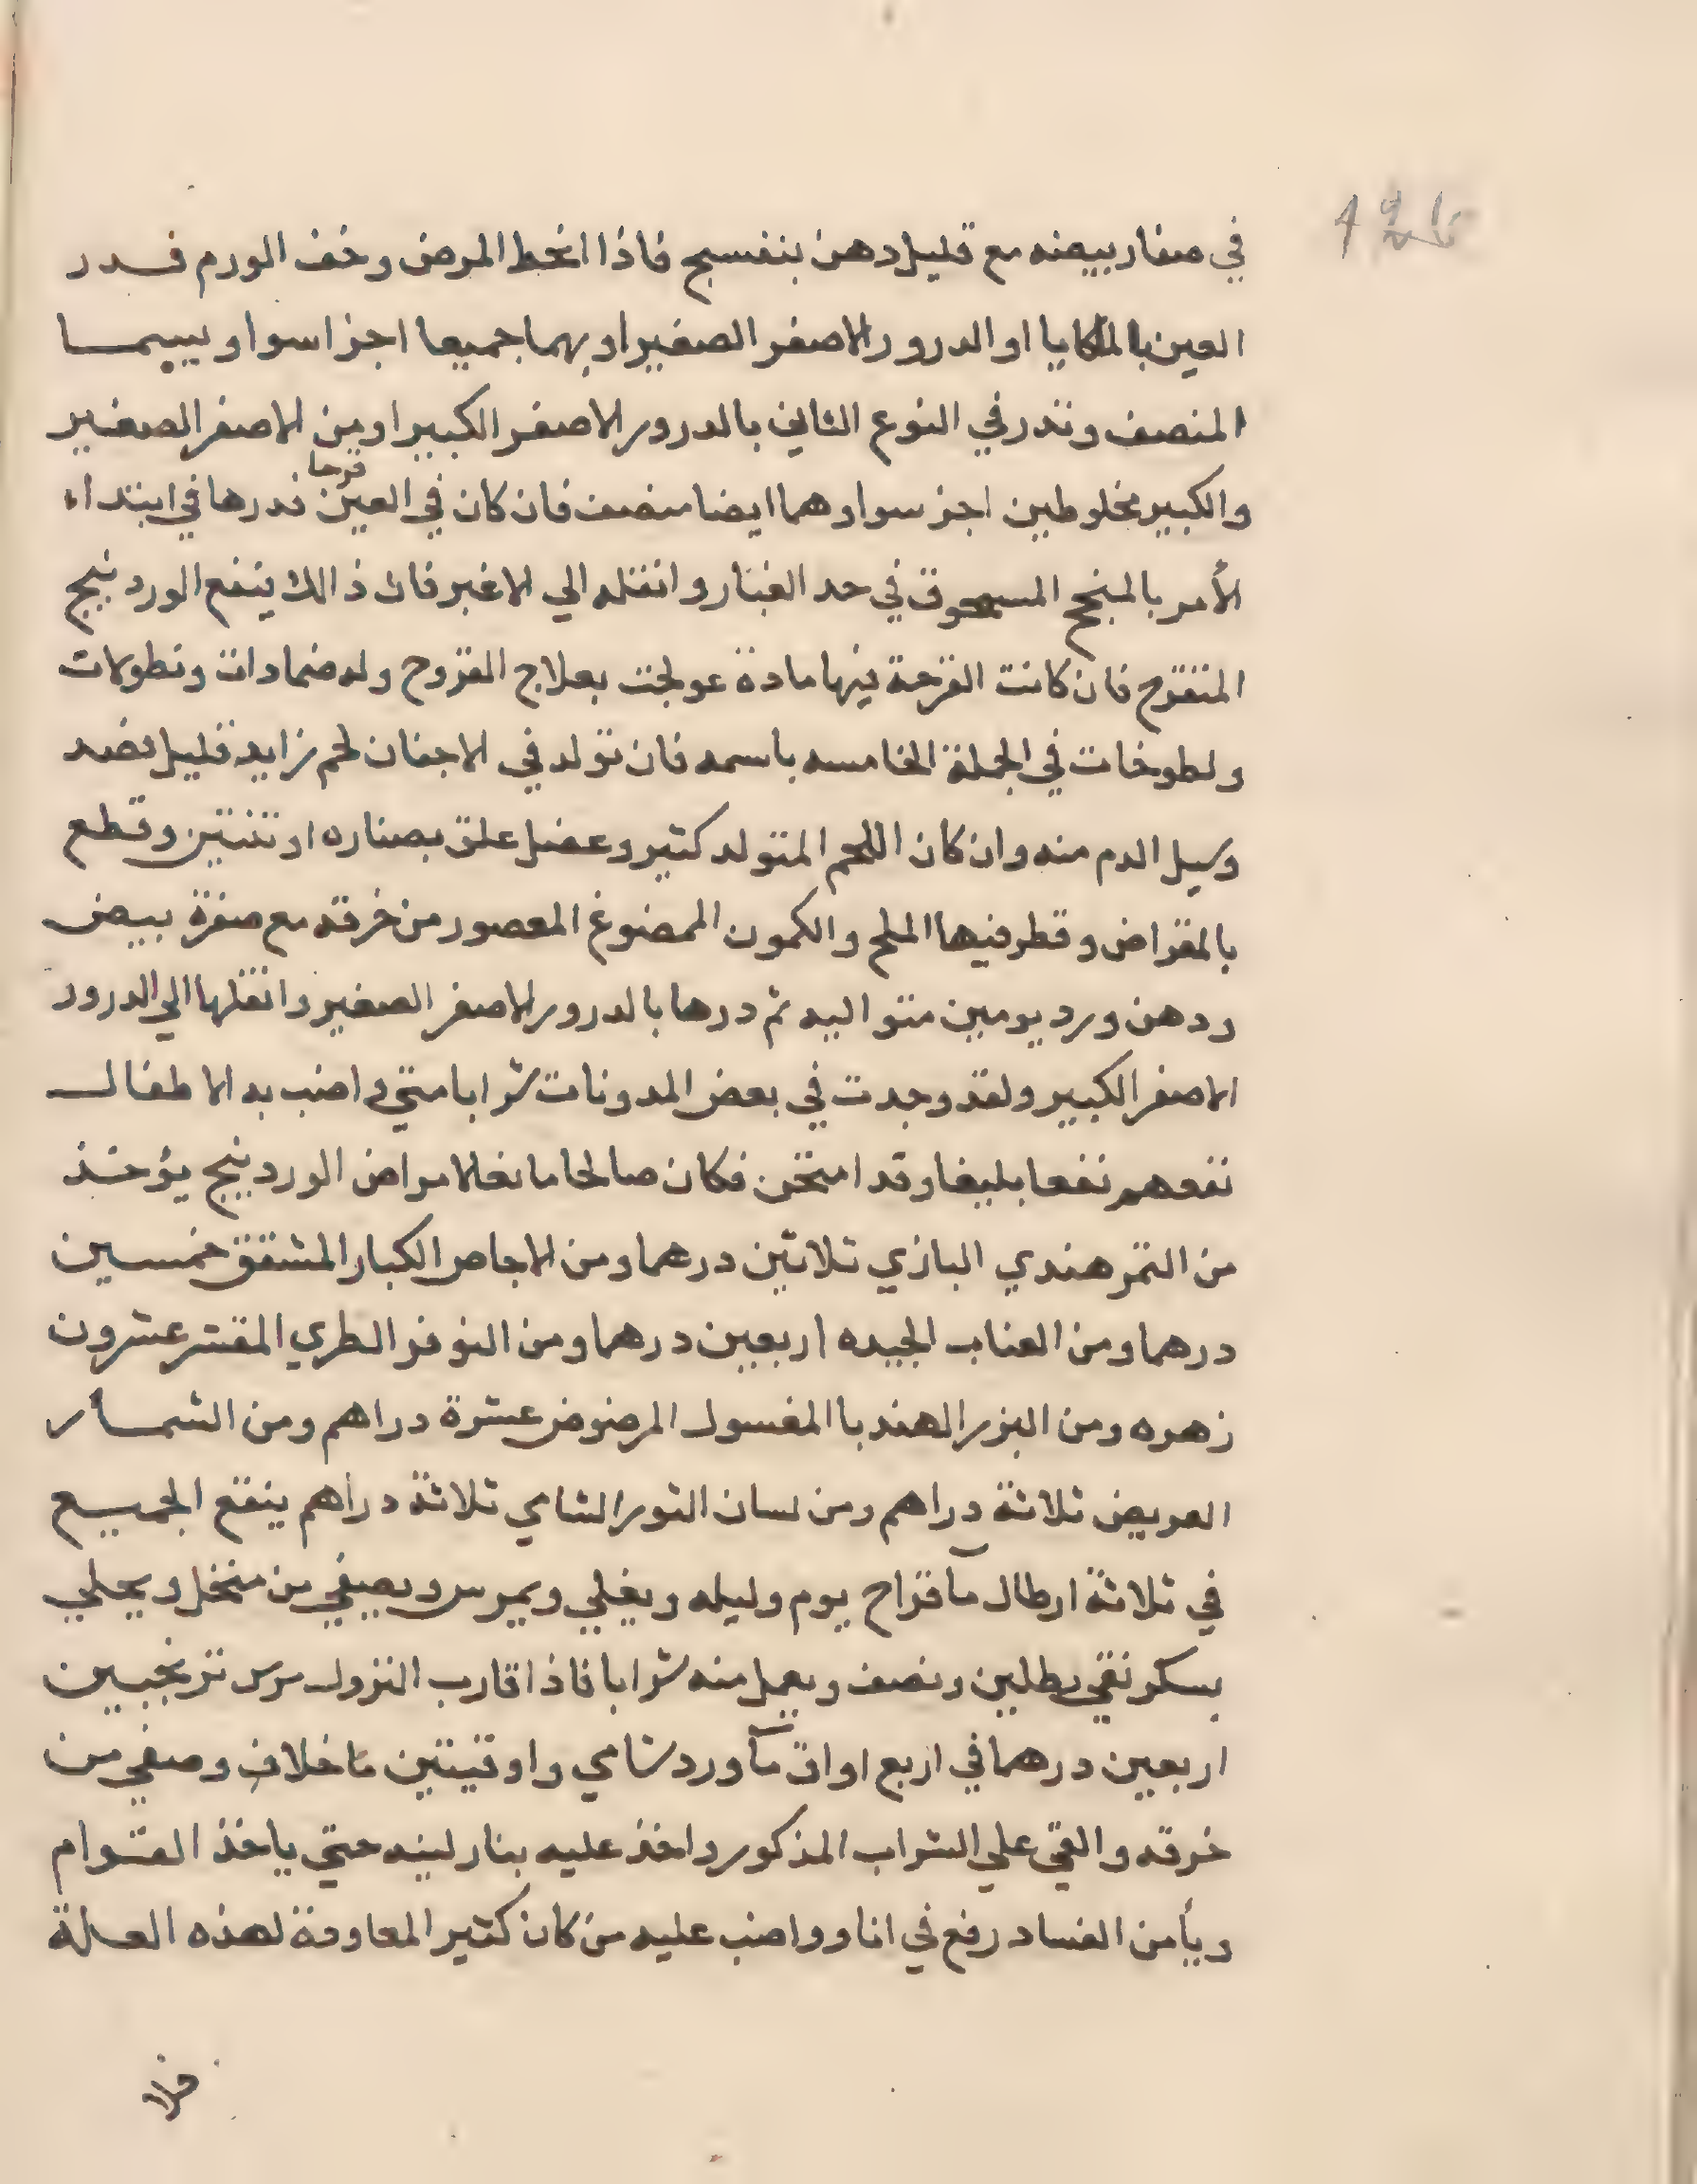 في صفار بيضه مع قليل دهن بنفسج فاذا انحط المرض وخف الورم فدر
العين بالملكايا او الدرور الاصفر الصغير او بهما جميعا اجزا سوا ويسيما
المنصف وتدر في النوع الثاني بالدرور الاصفر الكبير او من الاصفر الصغير
والكبير مخلوطين اجز سوا وهما ايضا منصف فان كان في العين قرحا فدرها في ابتداء
الأمر بالمنجح المسحوق في حد الغبار وانقله الي الاغبر فان ذالك ينفع الوردينج
المتقرح فان كانت القرحة فيها مادة عولجت بعلاج القروح وله ضمادات ونطولات
ولطوخات في الجملة الخامسه باسمه فان تولد في الاجفان لحم زايد قليل فضد
وسيل الدم منه وان كان اللحم المتولد كثير وعضل علق بصناره او ثنتين وقطع
بالمقراض وقطر فيها الملح والكمون الممضوغ المعصور من خرقه مع صفرة بيض
ودهن ورد يومين متواليه ثم درها بالدرور الاصفر الصغير وانقلها الي الدرور
الاصفر الكبير ولقد وجدت في بعض المدونات شرابا متي واضب به الاطفال
نفعهم نفعا بليغا وقد امتحن فكان صالحا مانعا لامراض الوردينج يؤخذ
من التمر هندي البازي ثلاثين درهما ومن الاجاص الكبار المشقق خمسين
درهما ومن العناب الجيده اربعين درهما ومن النوفر الطري المقشر عشرون
زهره ومن البزر الهندبا المغسول المرضوض عشرة دراهم ومن الشمار
العريض ثلاثة دراهم ومن لسان الثور الشامي ثلاثة دراهم ينقع الجميع
في ثلاثة ارطال مآ قراح يوم وليله ويغلي ويمرس ويصفي من منخل ويحلي
بسكر نقي رطلين ونصف ويعمل منه شرابا فاذا قارب النزول مرس ترنجبين
اربعين درهما في اربع اواق مآ ورد شامي واوقيتين ما خلاف وصفي من
خرقه والقي علي الشراب المذكور واخذ عليه بنار لينه حتي ياخذ القوام
ويأمن الفساد رفع في انا وواضب عليه من كان كثير المعاودة لهذه العلة